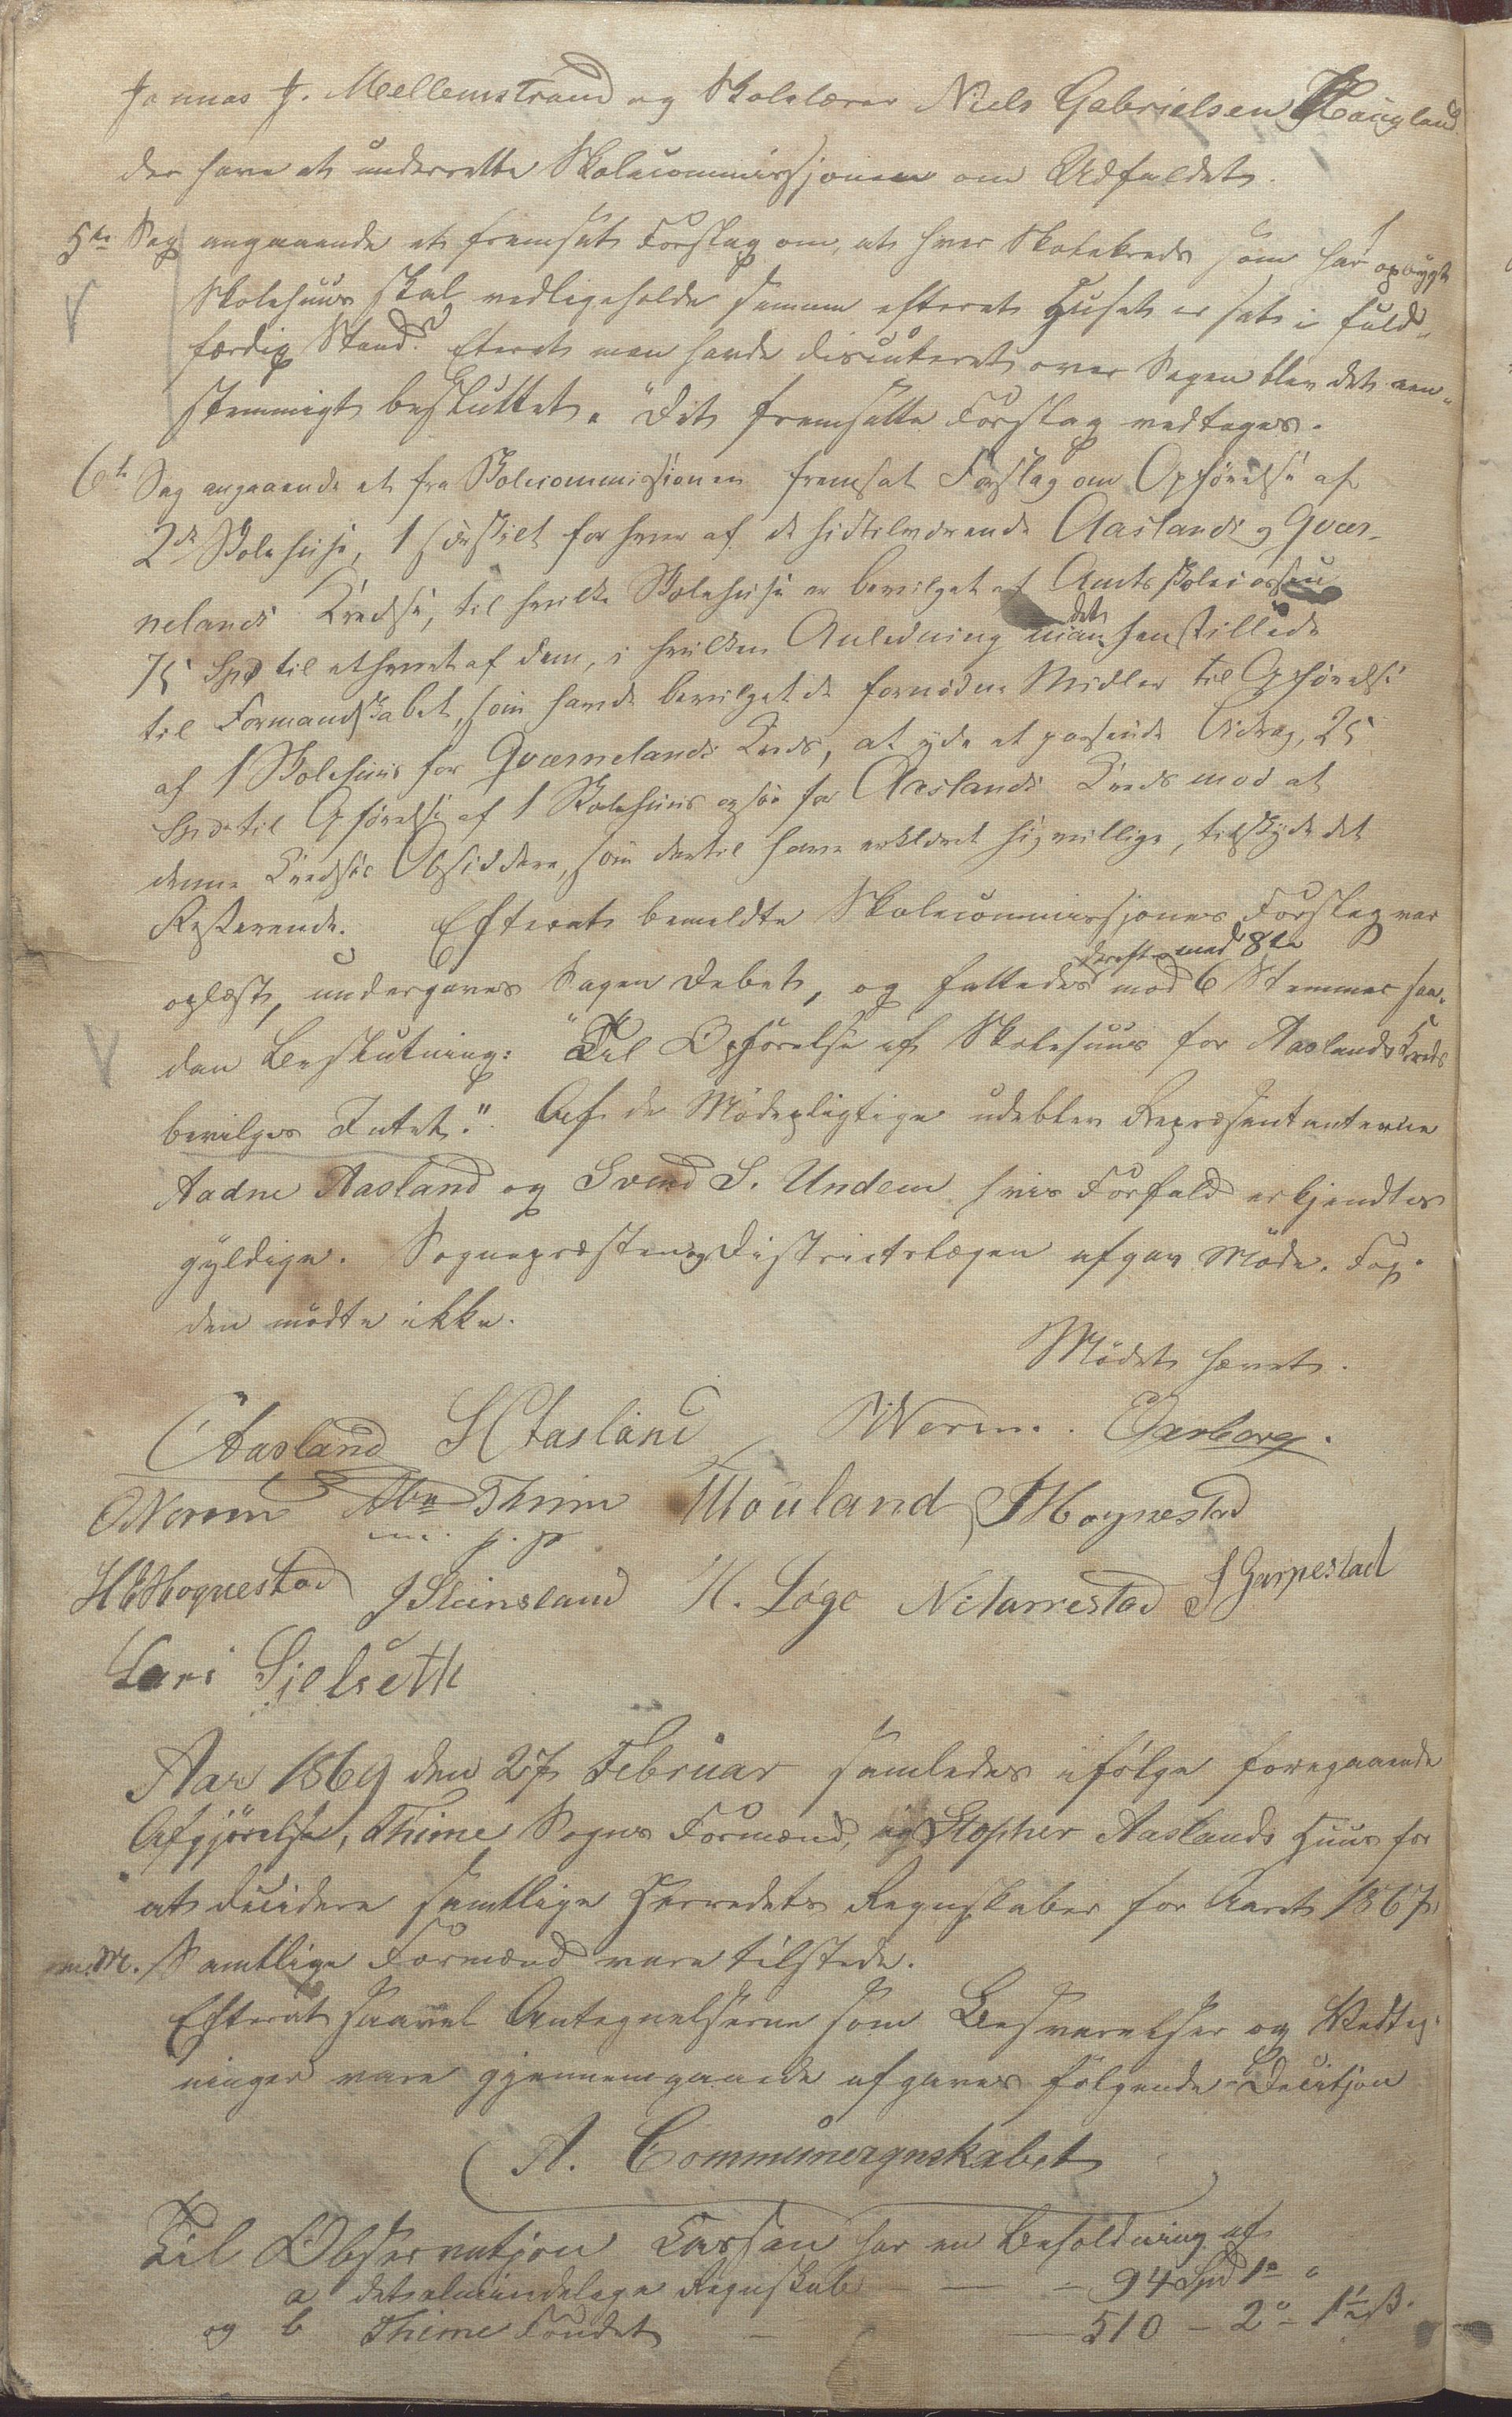 Jonnas J. Mellemstrand og Skolelærer Niels Gabrielsen Haugland
der have at underrette Skolecommissjonen om Udfaldet.
5te Sag angaaende et fremsat Forslag om, at hver Skolekreds som har opbygt
Skolehuus skal vedligeholde samme efterat Huset er sat i fuld-
færdig Stand. Efterat man havde discuteret over Sagen blev det een-
stemmigt besluttet. "Det fremsatte Forslag vedtages.
6te Sag angaaende et fra Skolecommissionen fremsat Forslag om Opførelse af
2de Skolehuse, 1 særskilt for hver af de hidtilværende Aaslands og Qvær-
nelands Kredse, til hvilke Skolehuse er bevilget af Amtsskolecassen
75 Spd til ethvert af dem, i hvilken Anledning man det henstillede
til Formandskabet, som havde bevilget de fornødne Midler til Opførelse
af 1 Skolehuus for Qværnelands Kreds, at yde et passende Bidrag, 25
Spd til Opførelse af 1 Skolehuus ogsaa for Aaslands Kreds mod at
denne Kredses Obsiddere, som dertil have erklæret sig villige, tilskyde det
Resterende. Efterat bemeldte Skolecommissjones Forslag var
oplæst, undergaves Sagen Debat, og fattedes derefter med 8te mod 6 Stemmer saa-
dan Beslutning: "Til Opførelse af Skolehuus for Aaslands Kreds
bevilges Intet." Af de Mødepligtige udeblev Repræsentanterne
Aadne Aasland og Svend S. Undem hvis Forfald erkjendtes
gyldige. Sognepræsten og Districtslægen afgav Møde. Fog-
den mødte ikke.
Mødet hævet.
Aasland S Aasland Nerem. Garborg.
O Nerem Thime Mouland Hognestad
m. p. p
H Hognestad J Steinsland H. Løge N Tarrestad S Garpestad
Lars Sjelseth
Aar 1869 den 27 Februar samledes ifølge foregaaende
Afgjørelse, Thime Sogns Formænd, i Stopher Aaslands Huus for
at decidere samtlige Herredets Regnskaber for Aaret 1867
m. M. Samtlige Formænd vare tilstede.
Efterat saavel Antegnelserne som Besvarelser og Vedteg-
ninger vare gjennemgaaede afgaves følgende Decitjon
A. Communeregnskabet
Til Observatjon Cassen har en Beholdning af
a det almindelige Regnskab — — 94 Spd 1 "
og b Thime Fondet — — 510 – 2 – 1½ ß.